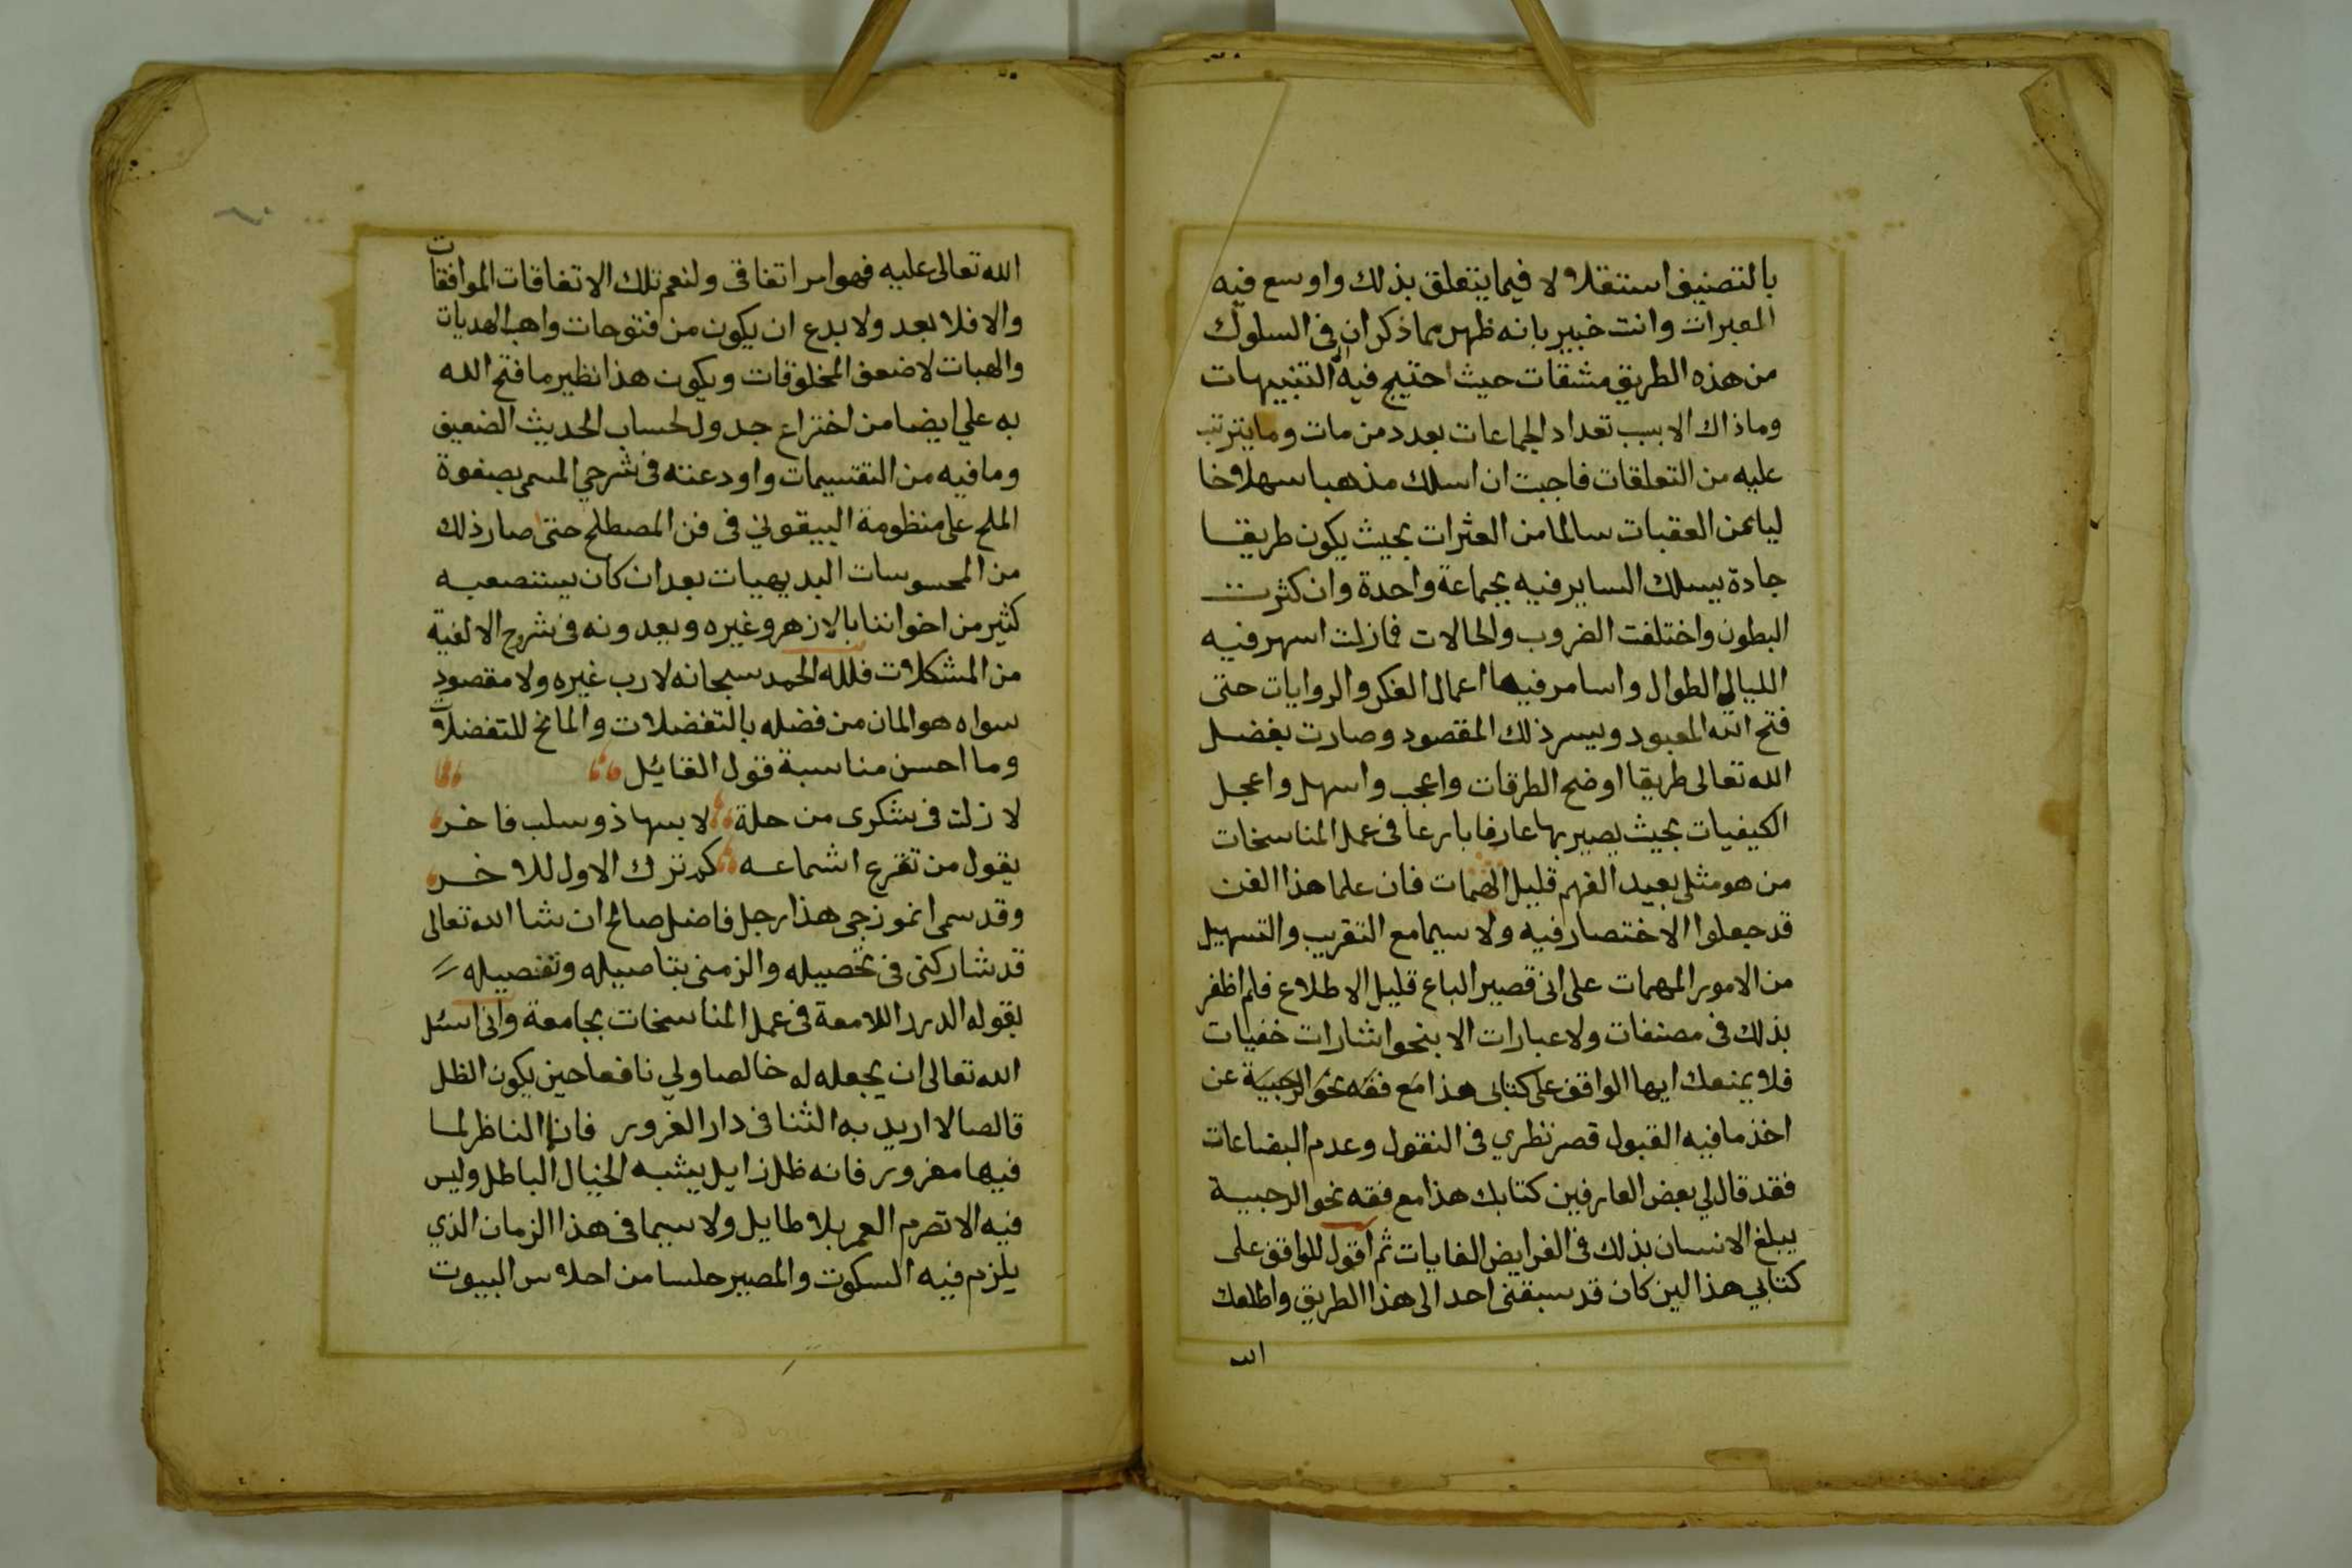 بالتصنيف استقلالا فيما يتعلق بذلك واوسع فيه
العبرات وانت خبير بانه ظهر مما ذكر ان في السلوك
من هذه الطريق مشقات حيث احتيج فيه الى التنبيهات
وما ذاك الا بسبب تعداد الجماعات بعدد من مات وما يترتب
عليه من التعلقات فاحببت ان اسلك مذهبا سهلا خا
ليا عن العقبات سالما من العثرات بحيث يكون طريقا
جادة يسلك الساير فيه بجماعة واحدة وان كثرت
البطون واختلفت الضروب والحالات فما زلت اسهر فيه
الليالي الطوال واسامر فيها اعمال الفكر والروايات حتى
فتح الله المعبود ويسر ذلك المقصود وصارت بفضل
الله تعالى طريقا اوضح الطرقات واعجب واسهل واعجل
الكيفيات بحيث يصير بها عارفا بارعا في عمل المناسخات
من هو مثلي بعيد الفهم قليل الهمات فان علما هذا الفن
قد جعلوا الاختصار فيه ولا سيما مع التقريب والتسهيل
من الامور المهمات على اني قصير الباع قليل الاطلاع فلم اظفر
بذلك في مصنفات ولا عبارات الا بنحو اشارات خفيات
فلا يمنعك ايها الواقف على كتابي هذا مع فقه نحو الرحبية عن
اخذ ما فيه القبول قصر نظري في النقول وعدم البضاعات
فقد قال لي بعض العارفين كتابك هذا مع فقه نحو الرحبية
يبلغ الانسان بذلك في الفرايض الغايات ثم اقول للواقف على
كتابي هذا لين كان قد سبقني احد الى هذا الطريق واطلعك
الله
٦٠
الله تعالى عليه فهو امر اتفاقي ولنعم تلك الاتفاقات الموافقات
والا فلا بعد ولا بدع ان يكون من فتوحات واهب الهديات
والهبات لاضعف المخلوقات ويكون هذا نظير ما فتح الله
به علي ايضا من اختراع جدول لحساب الحديث الضعيف
وما فيه من التقسيمات واودعته في شرحي المسمى بصفوة
الملح على منظومة البيقوني في فن المصطلح حتى صار ذلك
من المحسوسات البديهيات بعد ان كان يستصعبه
كثير من اخواننا بالازهر وغيره ويعدونه في شروح الالفية
من المشكلات فلله الحمد سبحانه لا رب غيره ولا مقصود
سواه هو المان من فضله بالتفضلات والمانح للتفضلات
وما احسن مناسبة قول القائل
لا زلت في شكرى من حلة لابسها ذو سلب فاخر
يقول من تقرع اسماعه كم ترك الاول للاخر
وقد سمى انموذجي هذا رجل فاضل صالح ان شا الله تعالى
قد شاركني في تحصيله والزمني بتاصيله وتفصيله
بقوله الدرر اللامعة في عمل المناسخات بجامعة واني اسئل
الله تعالى ان يجعله له خالصا ولي نافعا حين يكون الظل
قالصا لا اريد به الثنا في دار الغرور فان الناظر لما
فيها مغرور فانه ظل زايل يشبه الخيال الباطل وليس
فيه الا تصرم العمر بلا طايل ولا سيما في هذا الزمان الذي
يلزم فيه السكوت والمصير حلسا من احلاس البيوت